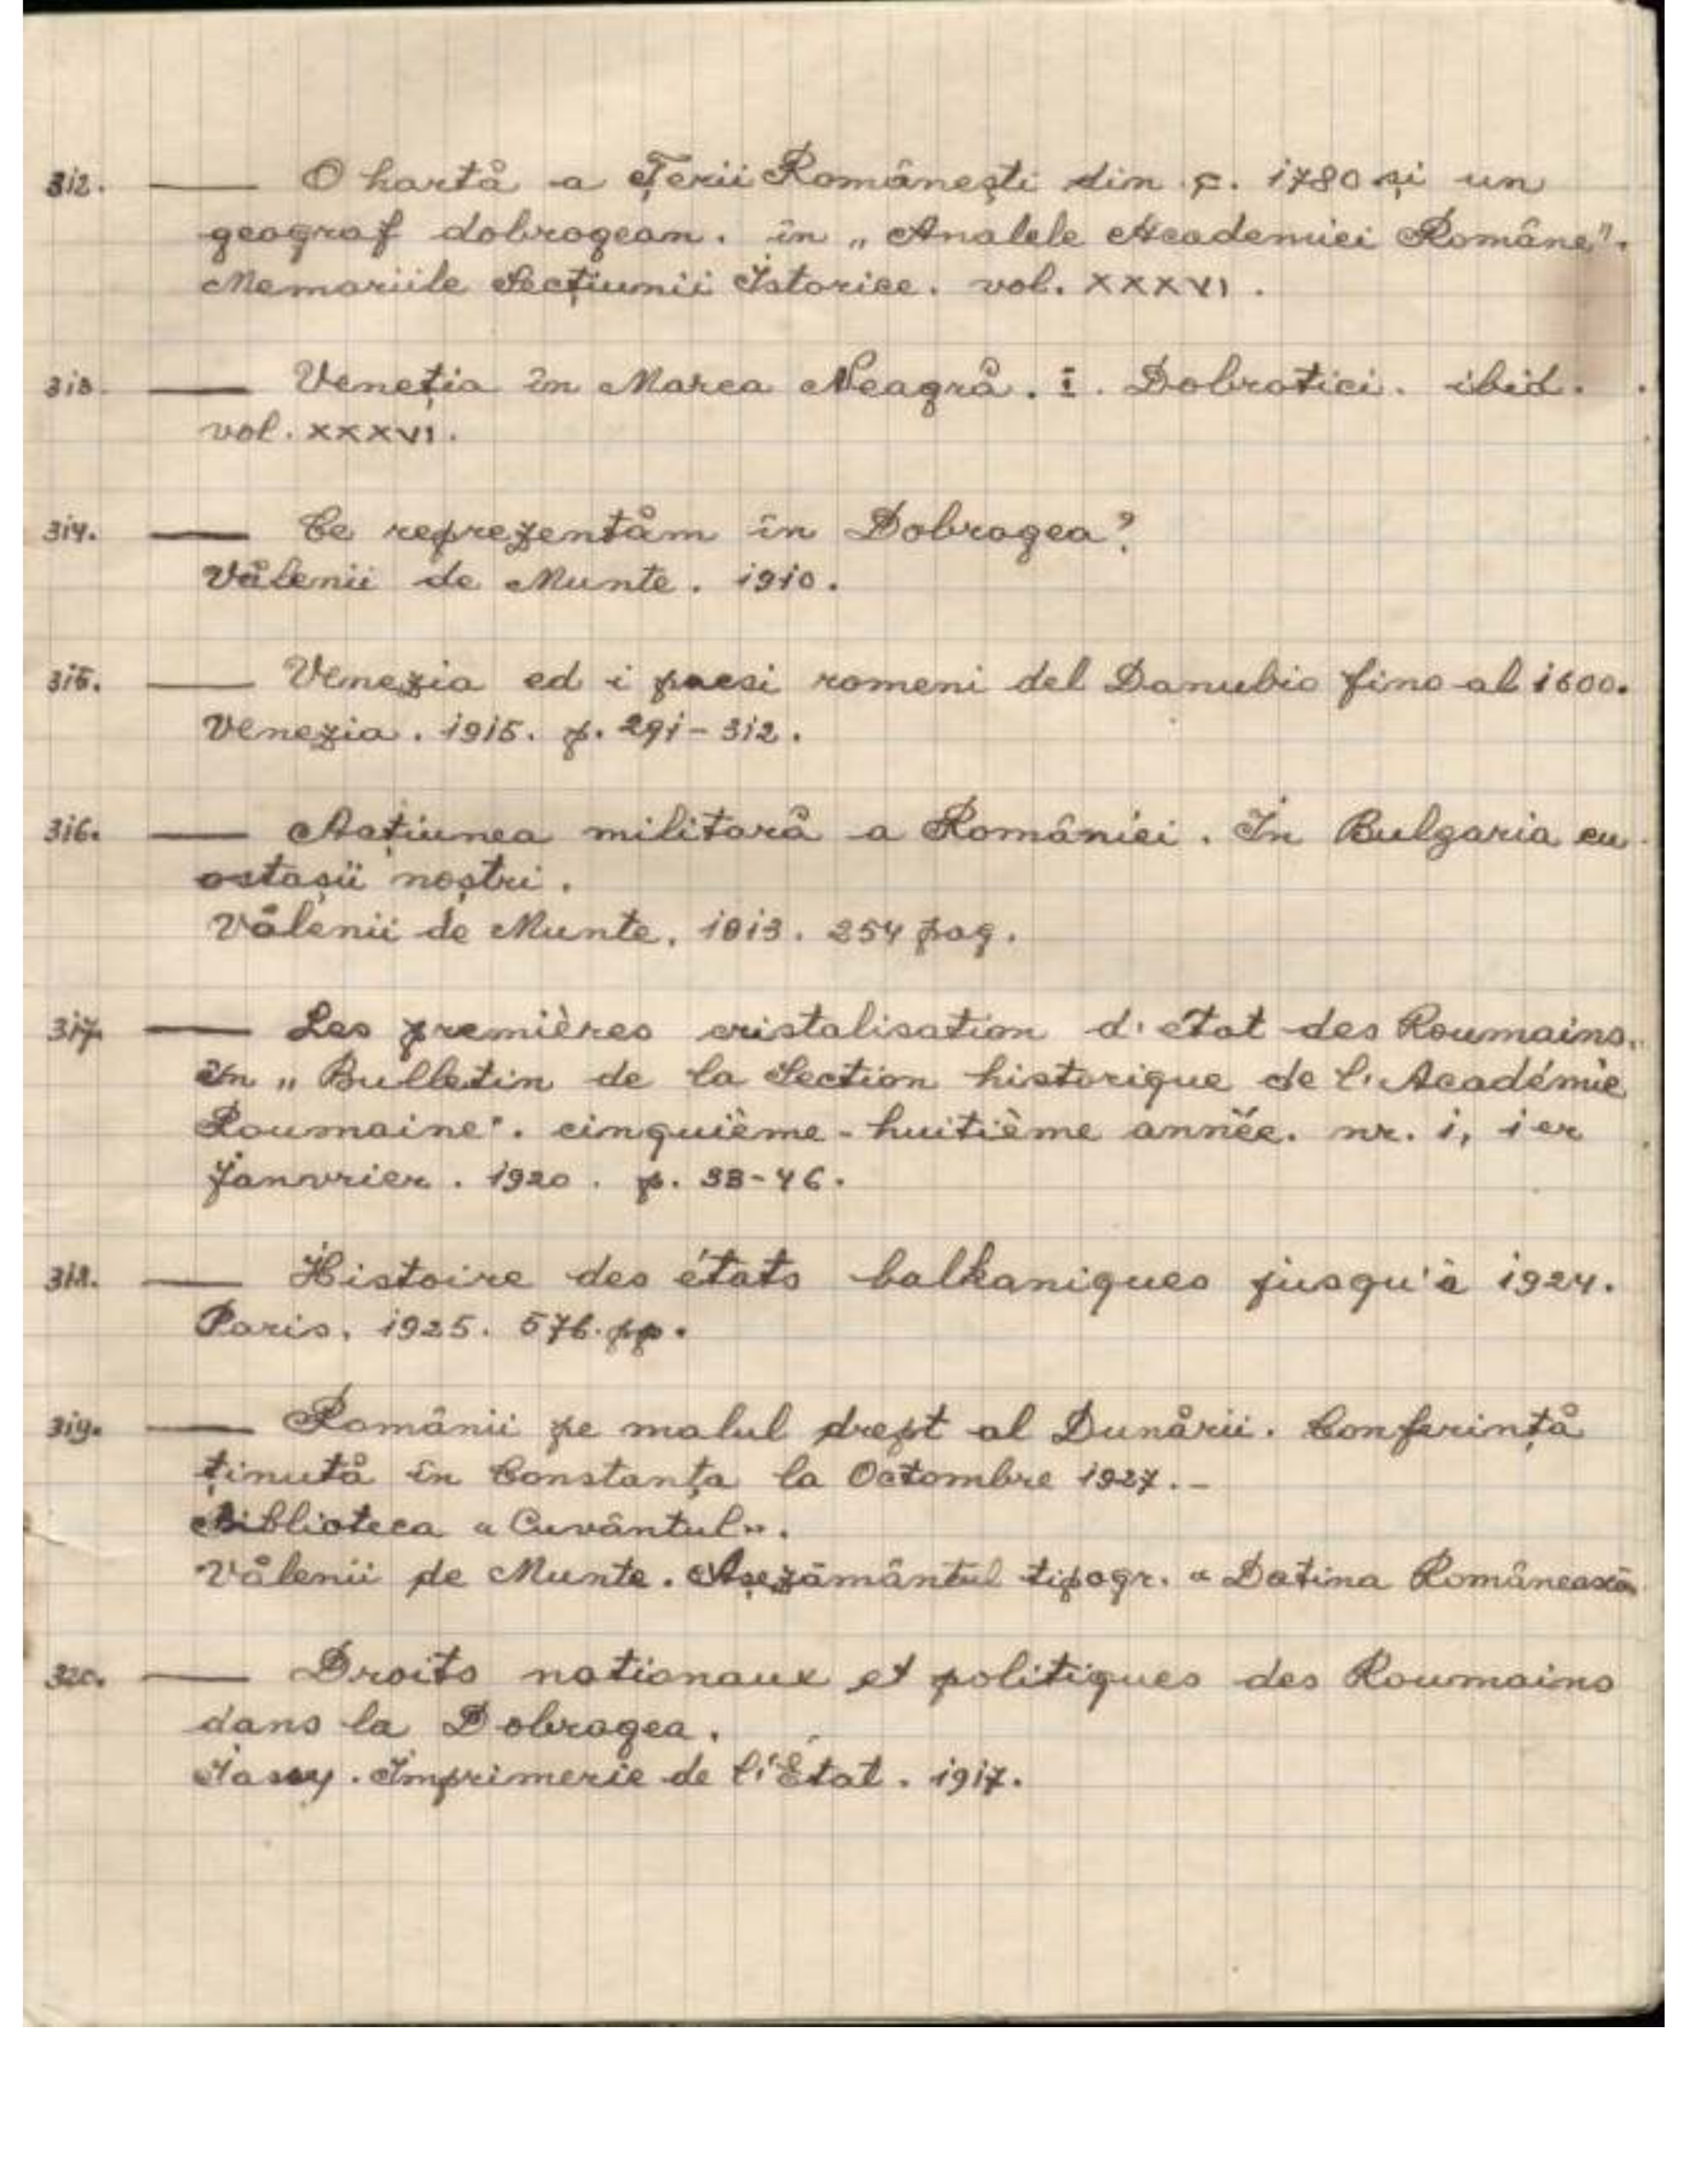 312. — O hartă a Țerii Românești din c. 1780 și un
geograf dobrogean. în „Analele Academiei Române".
Memoriile Secțiunii Istorice. vol. XXXVI.
313. — Veneția în Marea Neagră. I. Dobrotici. ibid.
vol. XXXVI.
314. — Ce reprezentăm în Dobrogea?
Vălenii de Munte. 1910.
315. — Venezia ed i paesi romeni del Danubio fino al 1600.
Venezia. 1915. p. 291-312.
316. — Acțiunea militară a României. În Bulgaria cu
ostașii noștri.
Vălenii de Munte. 1913. 254 pag.
317. — Les premières cristalisation d'état des Roumains.
în „Bulletin de la Section historique de l'Académie
Roumaine". cinquième-huitième année. nr. 1, 1er
Janvrier. 1920. p. 33-46.
318. — Histoire des états balkaniques jusqu'à 1924.
Paris. 1925. 576. pp.
319. — Românii pe malul drept al Dunării. Conferință
ținută în Constanța la Octombre 1927.-
Biblioteca «Cuvântul».
Vălenii de Munte. Așezământul tipogr. «Datina Românească
320. — Droits nationaux et politiques des Roumains
dans la Dobrogea.
Jassy. Imprimerie de l'État. 1917.